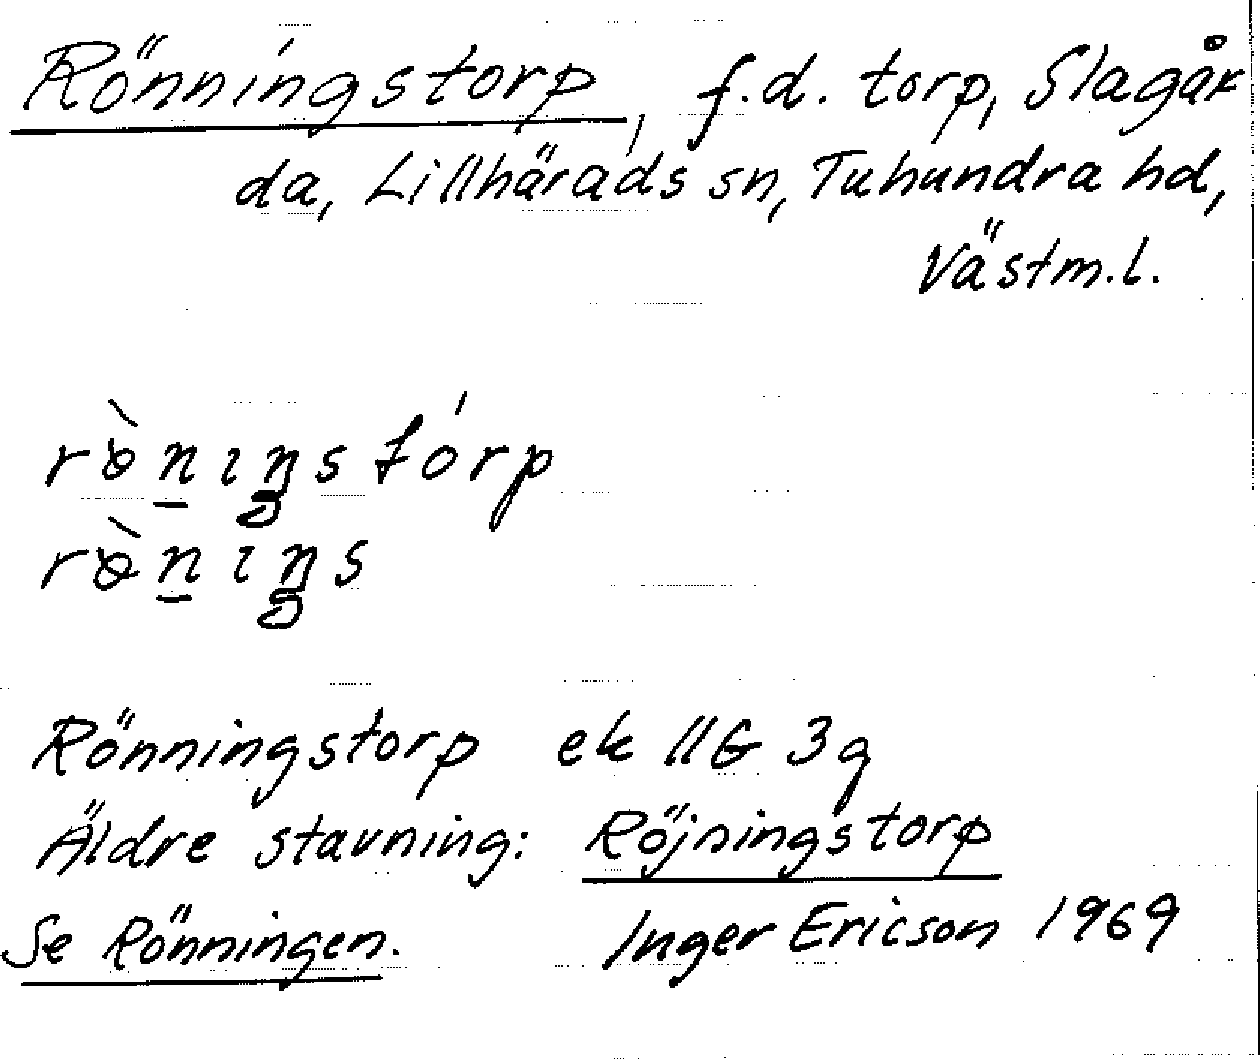 Rönningstorp, f.d. torp, Slagår
da, Lillhärads sn, Tuhundra hd,
Västm.l.
Rönningstorp ek 11G 3g
Äldre stavning: Röjningstorp
Se Rönningen. Inger Ericson 1969